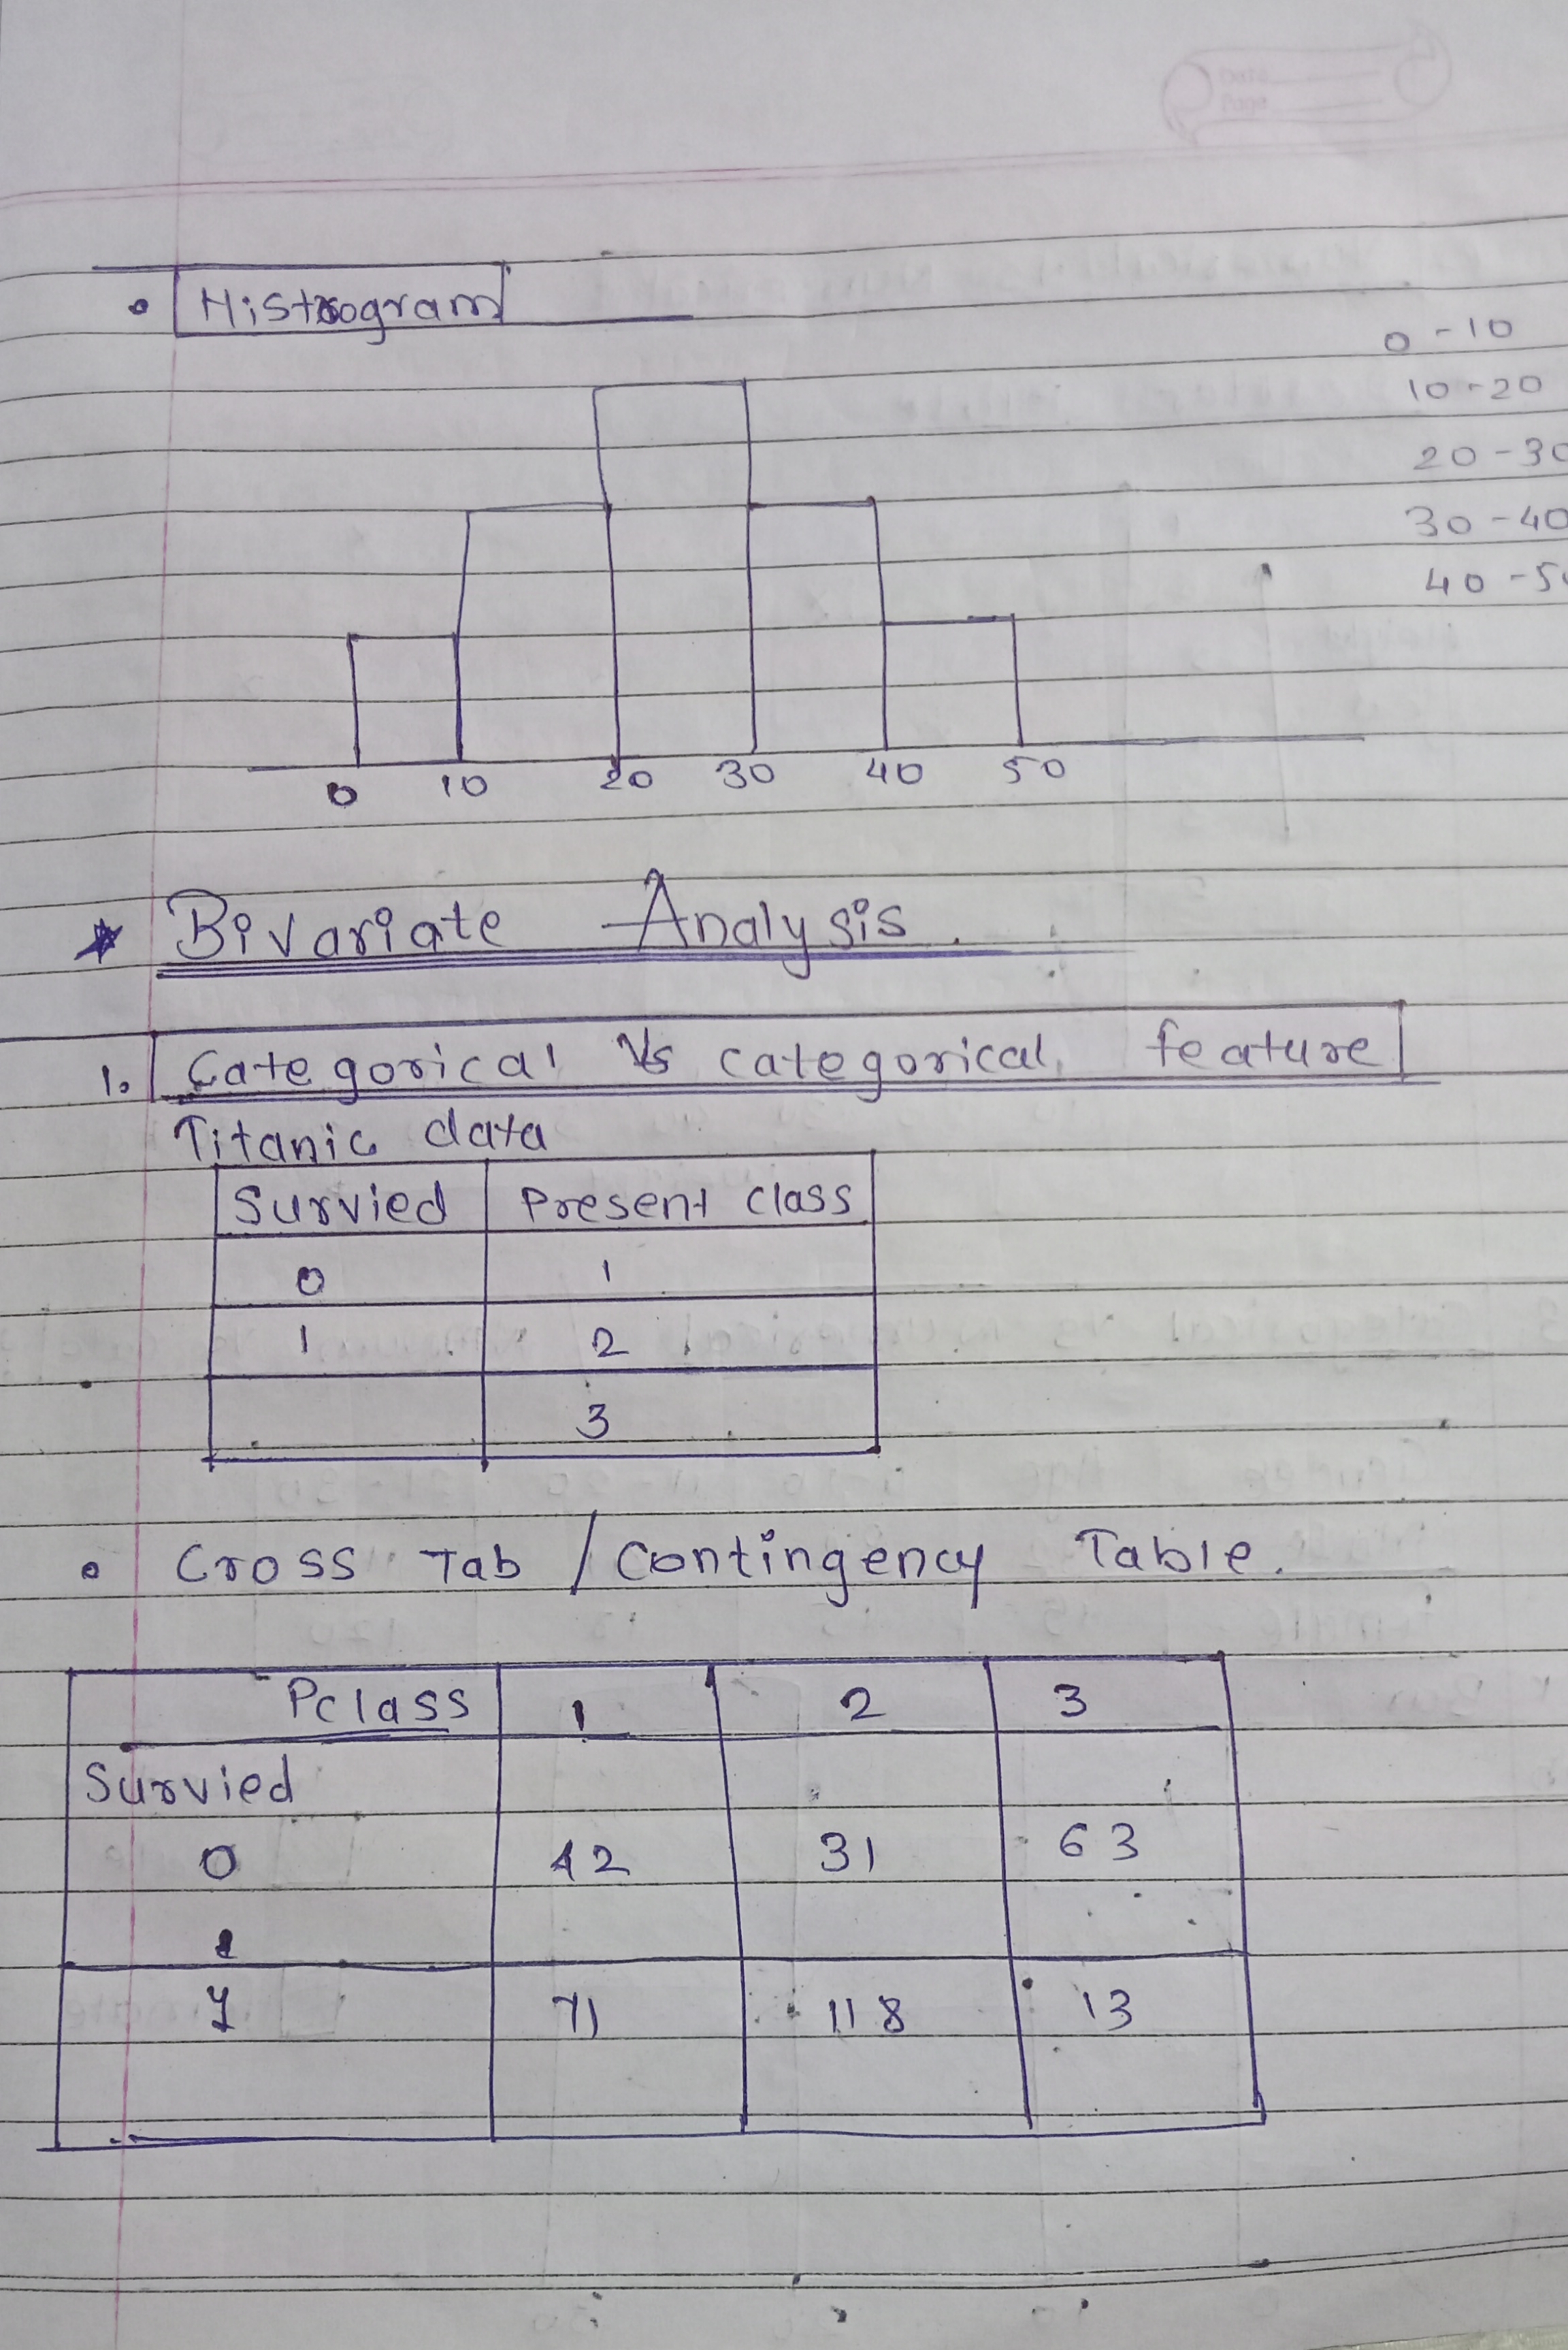 • Histrogram
0 - 10
10 - 20
20 - 30
30 - 40
40 - 5
0 10 20 30 40 50
* Bivariate Analysis.
1. Categorical Vs categorical feature
Titanic data
Survied Present class
0 1
1 2
3
• Cross Tab / Contingency Table.
Pclass 1 2 3
Survied
0 42 31 63
1 71 118 13